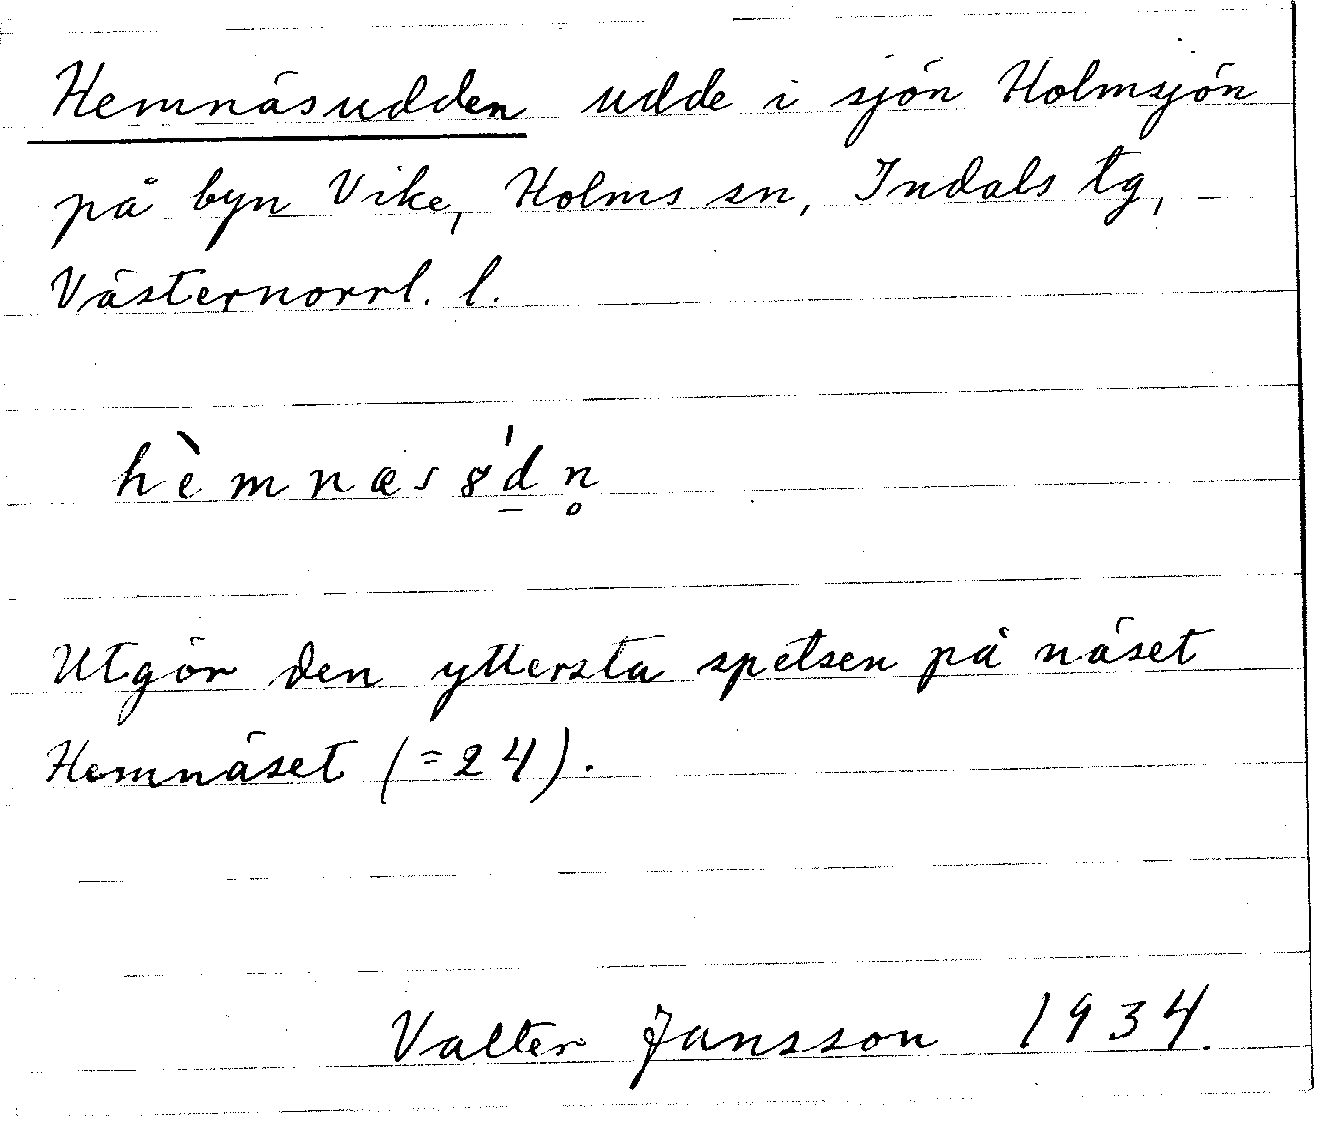 Hemnäsudden udde i sjön Holmsjön
på byn Vike, Holms sn, Indals tg,
Västernorrl. l.
hèmnæs8'd̲n̥
Utgör den yttersta spetsen på näset
Hemnäset (=24).
Valter Jansson 1934.